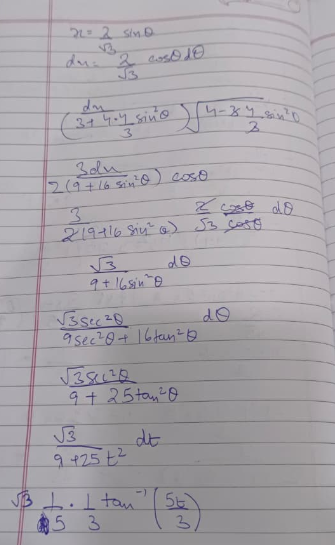 x = 2/√3 sinθ
dx = 2/√3 cosθ dθ
dx / (3 + 4·4/3 sin²θ) √(4 − 3·4/3 sin²θ)
3dx / 2(9 + 16 sin²θ) cosθ
3 / 2(9 + 16 sin²θ) 2 cosθ / √3 cosθ dθ
√3 / 9 + 16 sin²θ dθ
√3 sec²θ / 9 sec²θ + 16 tan²θ dθ
√3 sec²θ / 9 + 25 tan²θ
√3 / 9 + 25 t² dt
√3 1/5 · 1/3 tan⁻¹ (5t/3)